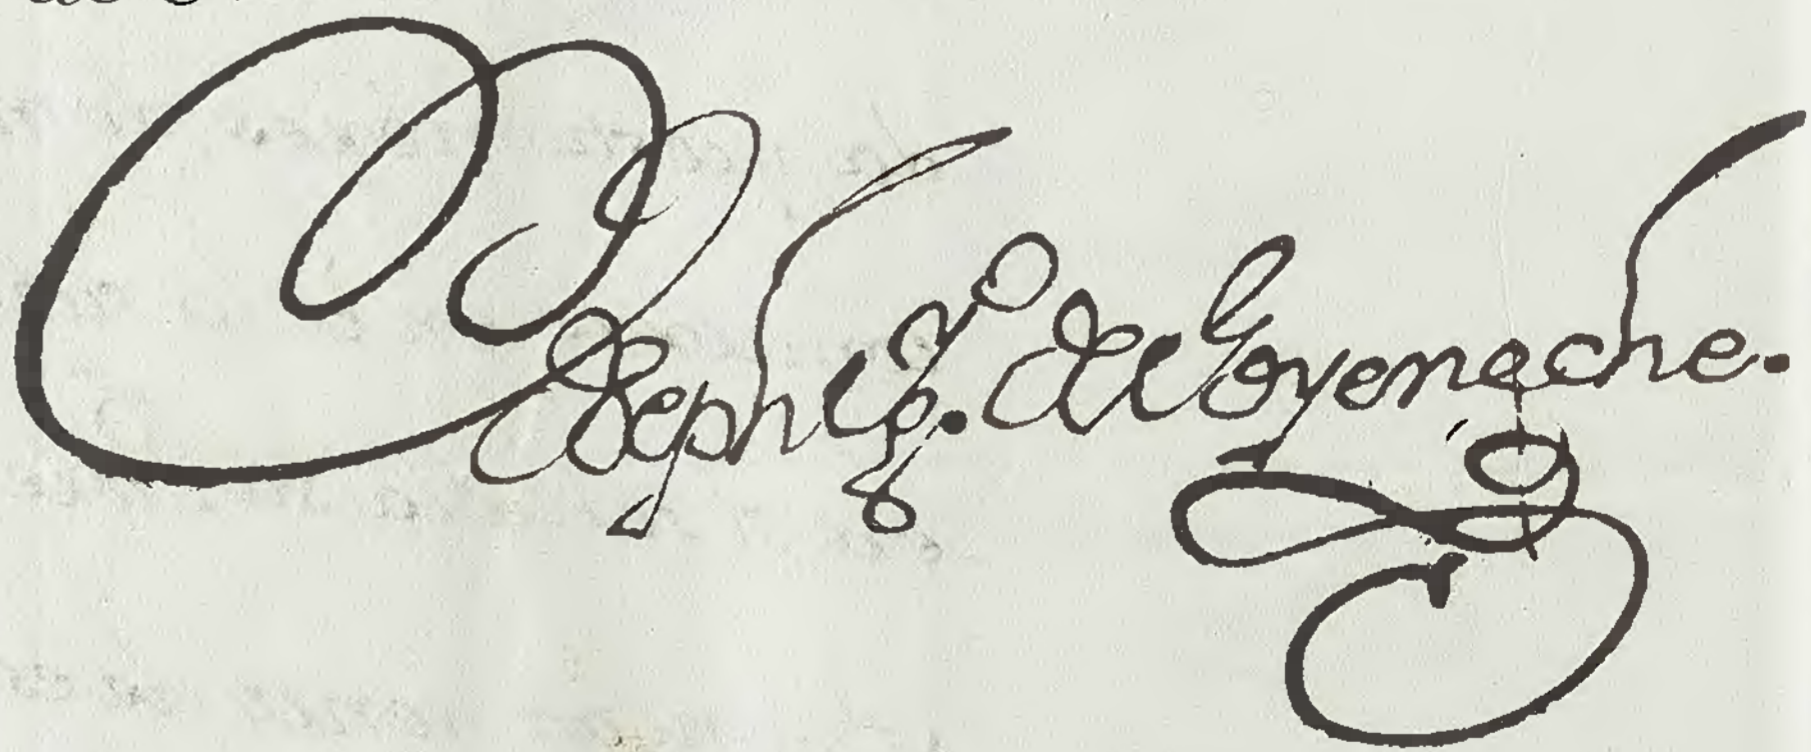 Joseph Ig.º de Goyeneche.